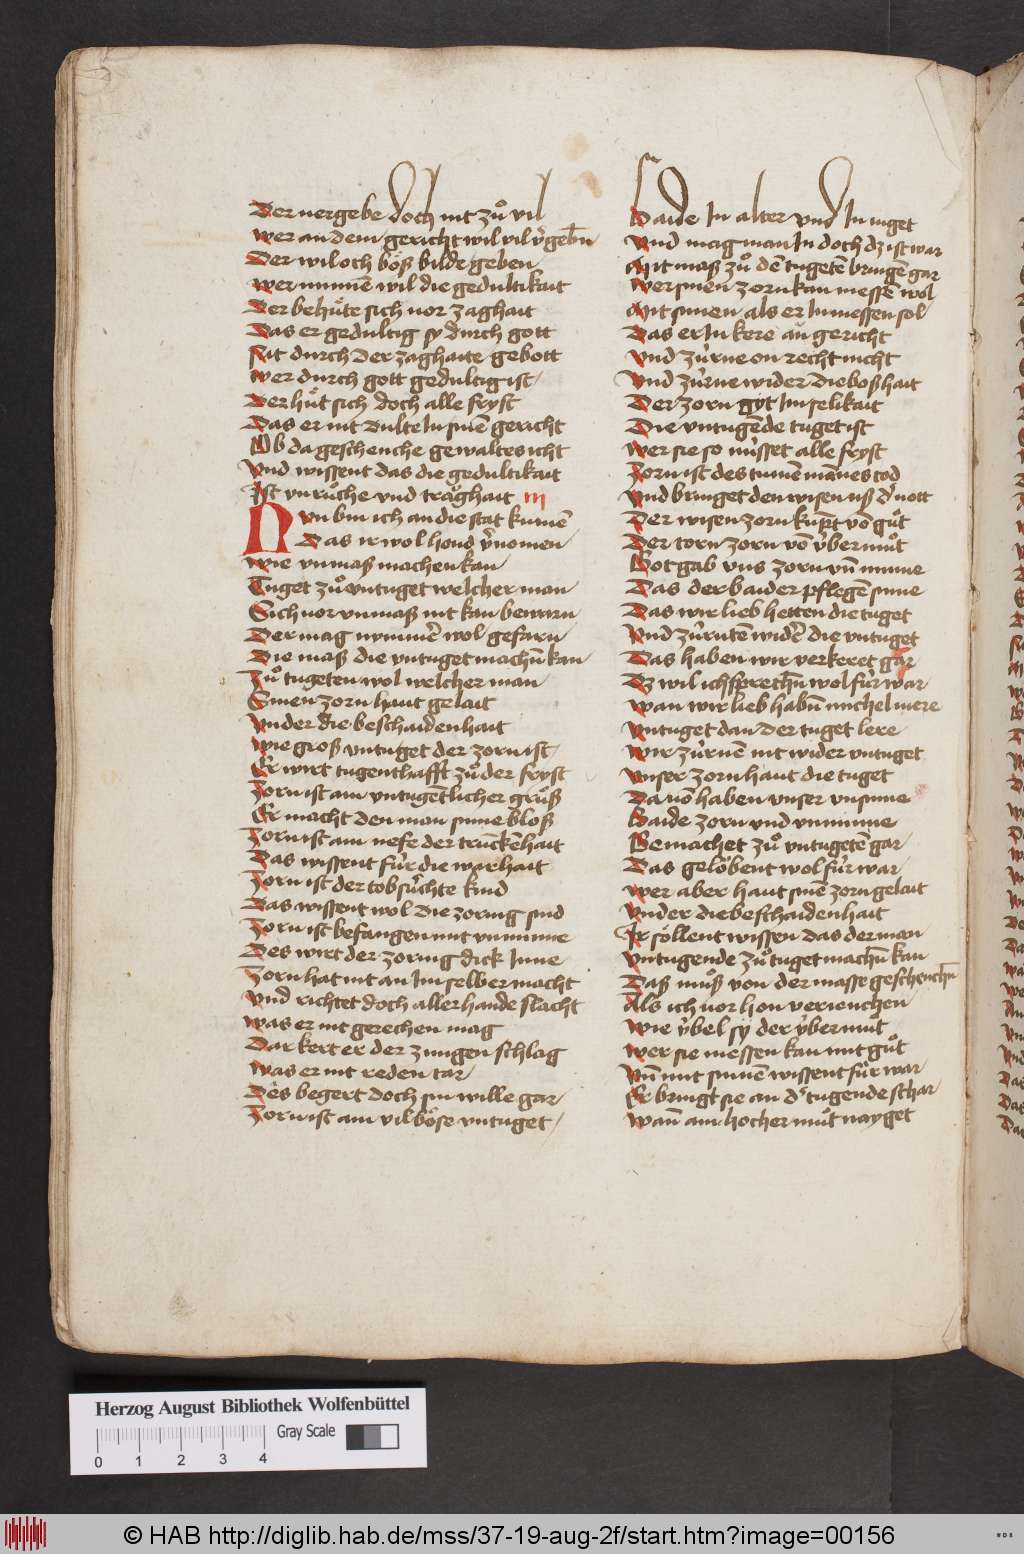 Der uergebe doch nit zuͦ vil
wer an dem gericht wil vil v̑gebn̄
Der wil och boͤß bilde geben
wer nimmē wil die gedultikait
Der behuͤte sich uor zaghait
Das er gedultig sy durch gott
nit durch Der zaghaite gebott
wer durch gott gedultig ist
Der huͤt sich doch alle fryst
Das er nit Dulte In sinē gericht
Ob da geschenche gewaltes icht
Vnd wissent das die gedultikait
Ist vnruͦche vnd traͤghait III
Nvn bin ich an die stat kumē
Das ir wol hond v̑nomen
wie vnmaß machen kan
Tuget zuͦ vntuget welcher man
Sich uor vnmaß nit kan bewarn
Der mag nymmē wol gefarn
Die maß die vntuget machn̄ kan
Zuͦ tugeten wol welcher man
Sinen zorn haut gelait
Vnder die beschaidenhait
wie groß vntuget der zorn ist
Er wirt tugenthafft zuͦ der fryst
Zorn ist am vntugētlicher gruͦß
Er macht den man sinne bloß
Zorn ist am nefe der trūckēhait
Das wissent fuͤr die warhait
Zorn ist der tobsuͤchte kind
Das wissent wol Die zornig sind
Zorn ist befangen mit vnminne
Des wirt der zornig dick Inne
Zorn hat nit an Im selber macht
Vnd richtet doch aller hande slacht
was er nit gerechen mag
Dar kert er der zungen schlag
was er nit reden tar
Des begert doch sin wille gar
Zorn ist am vil boͤse vntuget
Baide In alter vnd In iuget
Vnd mag man In doch dz ist war
Mit maß zuͦ dē tugetē bringē gar
Wer sinen zorn kan messē wol
Mit sinnen als er In messen sol
Das er In kere an gericht
Vnd zuͤrne on recht nicht
Vnd zuͤrne wider die boßhait
Der zorn gyt Im selikait
Die vntugēde tuget ist
Wer sie so muͤsset alle fryst
Zorn ist des tumē mānes tod
Vnd bringet den wisen uß d' nott
Der wisen zorn kūpt vō guͦt
Der torn zorn vō v̈bermuͦt
Got gab vns zorn vn̄ minne
Das der baider pflegē sinne
Das wir lieb hetten die tuget
Vnd zuͤrntē wid'e die vntuget
Das haben wir verkeret gar
Dz wil ich sprechn̄ wol fuͤr war
Wan wir lieb habn̄ michel mere
Vntuget dan der tuget lere
Wir zuͤrnē nit wider vntuget
Vnser zorn haut die tuget
Da uō haben vnser vnsinne
Baide zorn vnd vnminne
Gemachet zuͦ vntugetē gar
Das gelöbent wol fuͤr war
Wer aber haut sinē zorn gelait
Vnder die beschaidenhait
Ir söllent wissen das der man
Vntugende zuͦ tuget machn̄ kan
Daß muͦß von der masse geschenchn̄
Als ich uor hon veriencḥen
Wie v̈bel sy der v̈bermuͦt
Wer sie messen kan mit guͦt
Vn̄ mit sinnē wissent fuͤr war
Er bringt sie an d' tugende schar
Wan̄ am hocher muͦt nayget
Herzog August Bibliothek Wolfenbüttel
Gray Scale
0 1 2 3 4
© HAB http://diglib.hab.de/mss/37-19-aug-2f/start.htm?image=00156